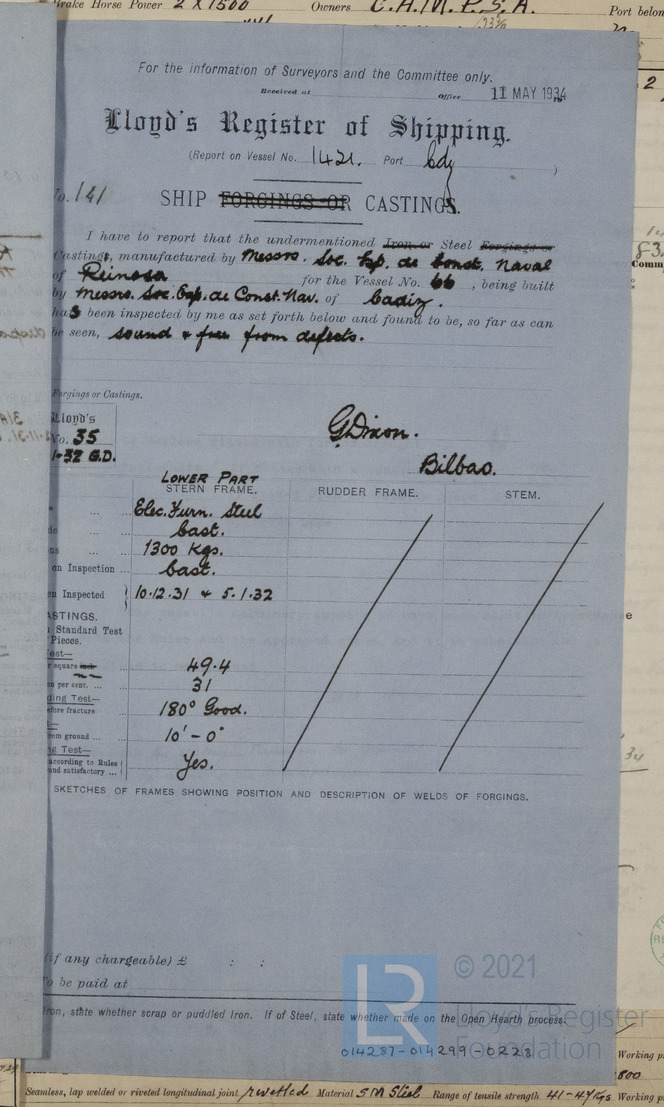 Brake Horse Power 2 X 1500 Owners C.A.M.P.S.A. Port belon
For the information of Surveyors and the Committee only.
Received at Office 11 MAY 1934
Lloyd's Register of Shipping.
(Report on Vessel No. 1421. Port Cdz )
No. 141
SHIP FORGINGS OR CASTINGS.
I have to report that the undermentioned Iron or Steel Forgings or
Castings, manufactured by Messrs. Soc. Esp. de Const. Naval
of Reinosa for the Vessel No. 66, being built
by Messrs. Soc. Esp. de Const. Nav. of Cadiz.
has been inspected by me as set forth below and found to be, so far as can
be seen, sound & free from defects.
Forgings or Castings.
Lloyd's
No. 35
1-32 G.D.
G. Dixon.
Bilbao.
LOWER PART
STERN FRAME. RUDDER FRAME. STEM.
Elec. Furn. Steel
Cast.
1300 Kgs.
on Inspection ... Cast.
n Inspected 10.12.31 & 5.1.32
ASTINGS.
Standard Test
Pieces.
est—
square inch ... 49.4
per cent. ... 31
ding Test—
efore fracture ... 180° Good.
rom ground ... 10'-0"
g Test—
according to Rules
and satisfactory ... Yes.
SKETCHES OF FRAMES SHOWING POSITION AND DESCRIPTION OF WELDS OF FORGINGS.
(if any chargeable) £ : :
To be paid at
Iron, state whether scrap or puddled Iron. If of Steel, state whether made on the Open Hearth process.
LR
© 2021
Lloyd's Register
Foundation
014287-014299-0228
Working p
800
Seamless, lap welded or riveted longitudinal joint rivetted Material S M Steel Range of tensile strength 41-47 Kgs Working p